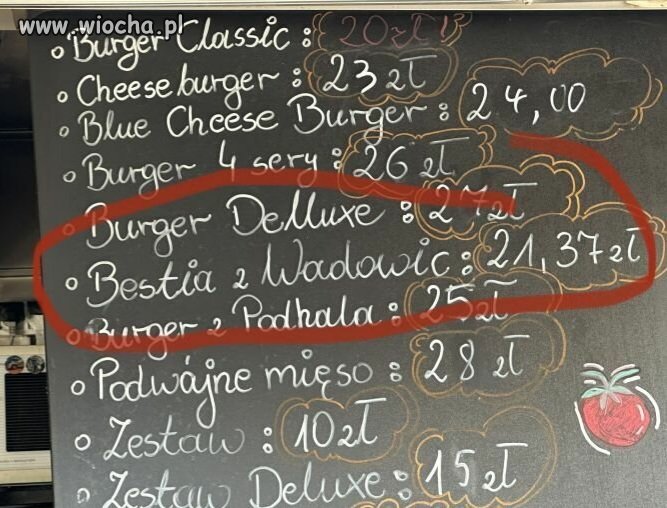 www.wiocha.pl
• Burger Classic: 20zł
• Cheeseburger: 23 zł
• Blue Cheese Burger: 24,00
• Burger 4 sery: 26 zł
• Burger DeMuxe: 27zł
• Bestia z Wadowic: 21,37zł
• Burger z Podhala: 25zł
• Podwájne mięso: 28 zł
• Zestaw: 10zł
• Zestaw Deluxe: 15zł